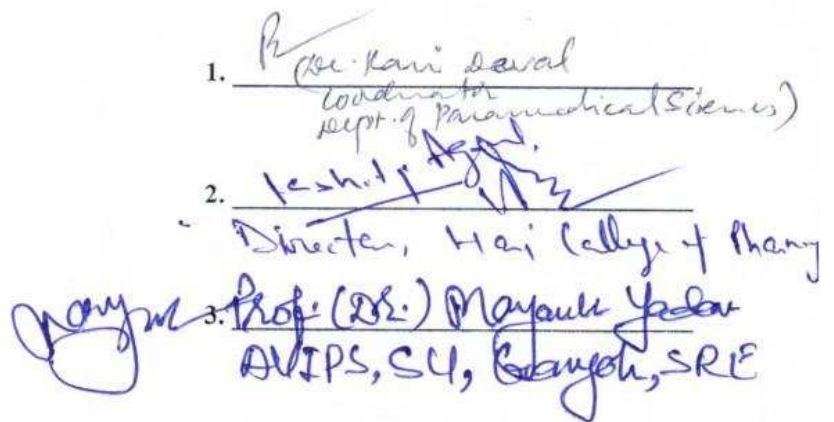 1.
(Dr. Ravi Dayal
Coordinator
Dept. of Paramedical Sciences)
2.
Director, Hari College of Pharmacy
3. Prof. (Dr.) Mayank Yadav
AVIPS, SU, Gangoh, SRE